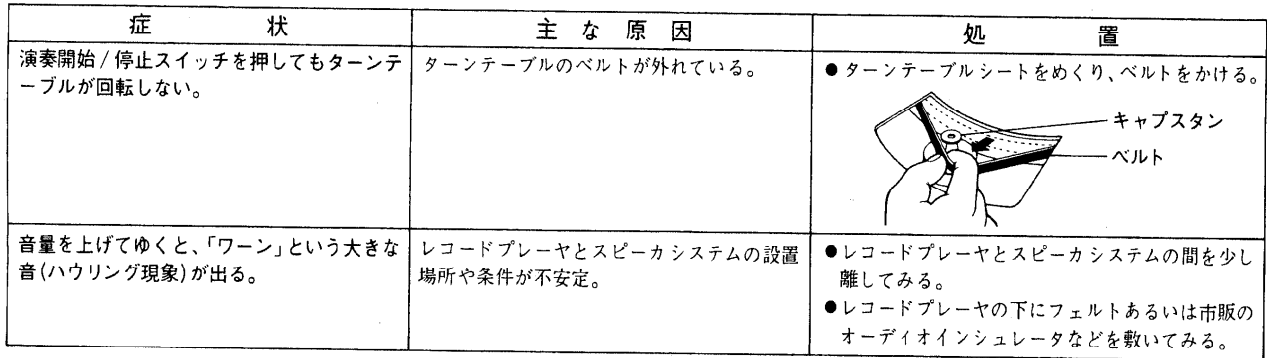 症状
主な原因
処置
演奏開始/停止スイッチを押してもターンテ
ーブルが回転しない。
ターンテーブルのベルトが外れている。
●ターンテーブルシートをめくり、ベルトをかける。
キャプスタン
ベルト
音量を上げてゆくと、「ワーン」という大きな
音(ハウリング現象)が出る。
レコードプレーヤとスピーカシステムの設置
場所や条件が不安定。
●レコードプレーヤとスピーカシステムの間を少し
離してみる。
●レコードプレーヤの下にフェルトあるいは市販の
オーディオインシュレータなどを敷いてみる。